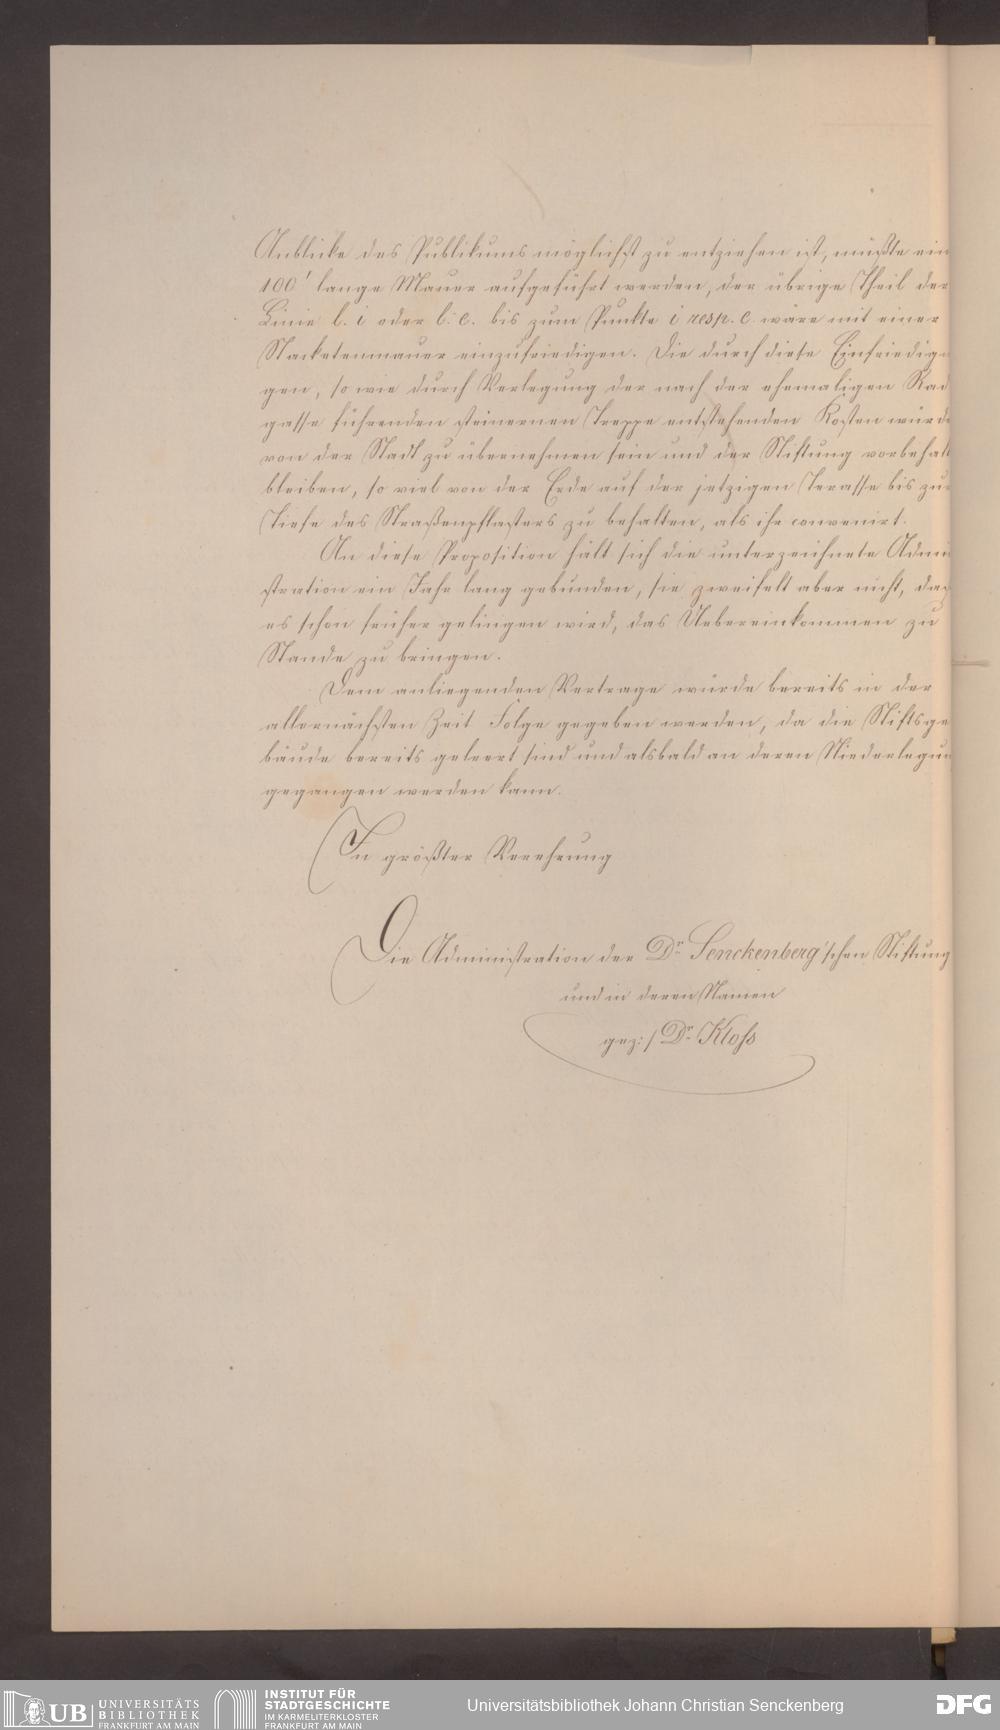 Anblicke des Publikums möglichst zu entziehen ist, müßte ein
100' lange Mauer aufgeführt werden, der übrige Theil der
Linie b. i oder b. c. bis zum Punkte i resp. c. wäre mit einer
Stacketenmauer einzufriedigen. Die durch diese Einfriedigu
gen, so wie durch Verlegung der nach der ehemaligen Rad
gasse führenden steinernen Treppe entstehenden Kosten würde
von der Stadt zu übernehmen sein und der Stiftung vorbehalt
bleiben, so viel von der Erde auf der jetzigen Terasse bis zur
Tiefe des Straßenpflasters zu behalten, als ihr convenirt.
An diese Proposition hält sich die unterzeichnete Admini
stration ein Jahr lang gebunden, sie zweifelt aber nicht, daß
es schon früher gelingen wird, das Uebereinkommen zu
Stande zu bringen.
Dem anliegenden Vertrage würde bereits in der
allernächsten Zeit Folge gegeben werden, da die Stiftsge
bäude bereits geleert sind und alsbald an deren Niederlegun
gegangen werden kann.
In größter Verehrung
Die Administration der Dr. Senckenberg'schen Stiftung
und in deren Namen
gez:/ Dr. Kloss
UB UNIVERSITÄTS BIBLIOTHEK FRANKFURT AM MAIN
INSTITUT FÜR STADTGESCHICHTE IM KARMELITERKLOSTER FRANKFURT AM MAIN
Universitätsbibliothek Johann Christian Senckenberg
DFG